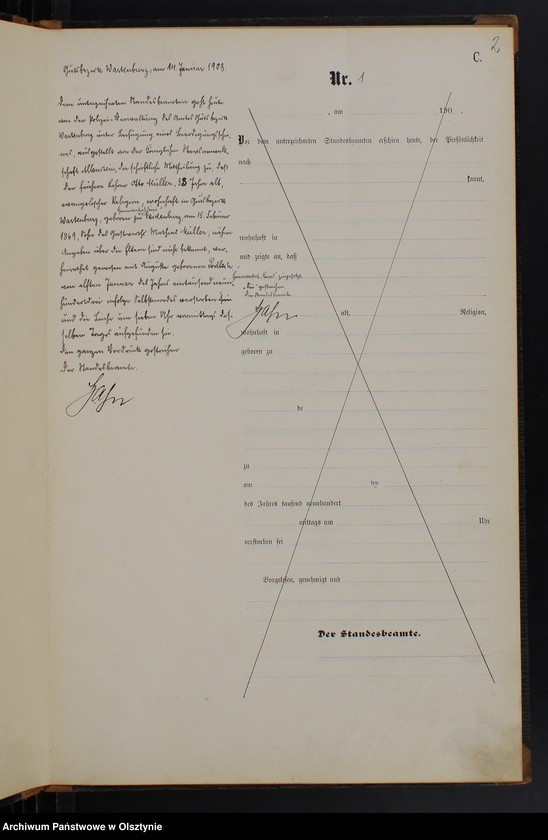 2
C.
Nr. 1
Gutsbezirk Wartenburg, am 14. Januar 1903.
Dem unterzeichneten Standesbeamten geht heute
von der Polizei-Verwaltung des Amtes Gutsbezirk
Wartenburg unter Beifügung eines Beerdigungsschei-
nes, ausgestellt von der Königlichen Staatsanwalt-
schaft Allenstein, die schriftliche Mittheilung zu, daß
der frühere Lehrer Otto Müller, 33 Jahre alt,
evangelischer Religion, wohnhaft in Gutsbezirk
Wartenburg, geboren zu am 15. Februar
1869, Sohn des Gastwirths Mathias Müller, nähere
Angaben über die Eltern sind nicht bekannt, ver-
heirathet gewesen mit Auguste geborenen
am elften Januar des Jahres eintausend neun-
hundert drei infolge Selbstmordes verstorben
und die Leiche um sieben Uhr vormittags des-
selben Tages aufgefunden sei.
Den ganzen Vordruck gestrichen
Der Standesbeamte.
Hahn
, am 190 .
Vor dem unterzeichneten Standesbeamten erschien heute, der Persönlichkeit
nach
kannt,
wohnhaft in
und zeigte an, daß
zugesetzt,
gestrichen
Der Standesbeamte
Hahn
alt, Religion,
wohnhaft in
geboren zu
de
zu
am ten
des Jahres tausend neunhundert
mittags um Uhr
verstorben sei
Vorgelesen, genehmigt und
Der Standesbeamte.
Archiwum Państwowe w Olsztynie